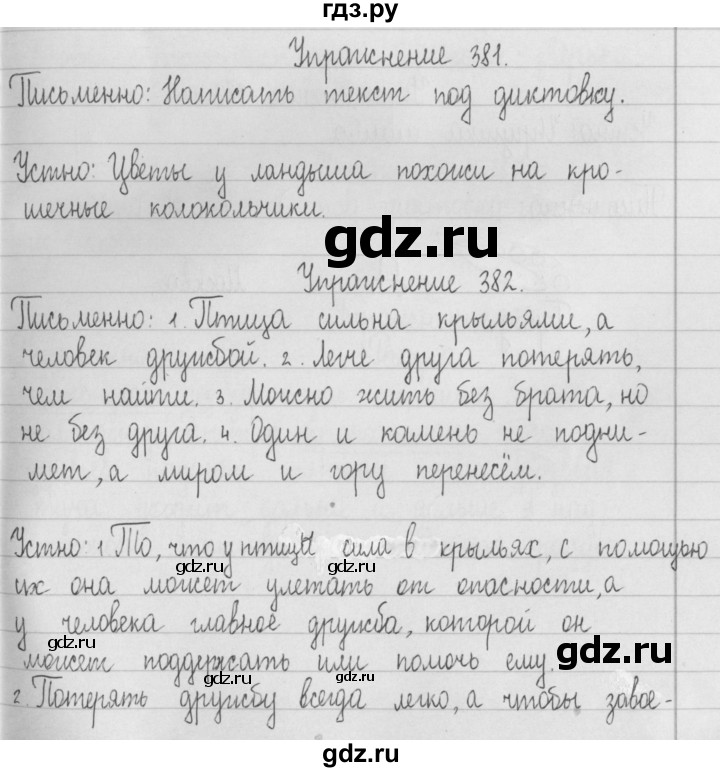 гдз.ру
Упражнение 381.
Письменно: Написать текст под диктовку.
Устно: Цветы у ландыша похожи на кро-
шечные колокольчики.
gdz.ru
Упражнение 382.
Письменно: 1. Птица сильна крыльями, а
человек дружбой. 2. Легче друга потерять,
чем найти. 3. Можно жить без брата, но
не без друга. 4. Один и камень не подни-
мет, а миром и гору перенесём.
Устно: 1 То, что у птицы сила в крыльях, с помощью
gdz.ru gdz.ru
их она может улетать от опасности, а
у человека главное дружба, которой он
gdz.ru gdz.ru gdz.ru
может поддержать или помочь ему.
2. Потерять дружбу всегда легко, а чтобы завое-
gdz.ru